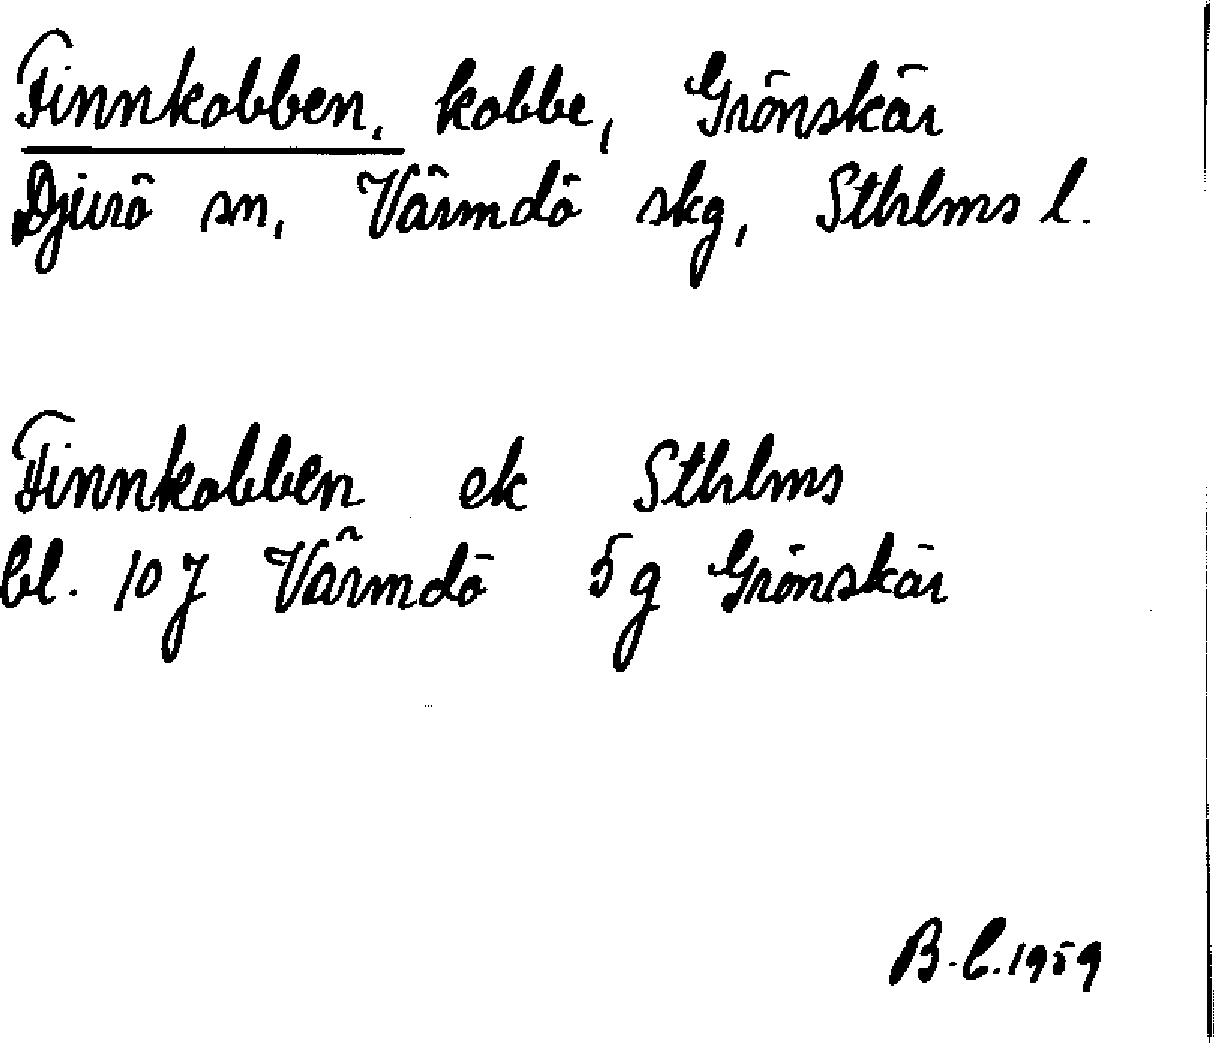 Finnkobben, kobbe, Grönskär
Djurö sn, Värmdö skg, Sthlms l.
Finnkobben ek Sthlms
bl. 10 J Värmdö 5 g Grönskär
B.C. 1959